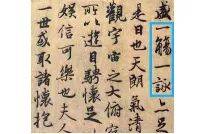 盛一觴一詠亦足
是日也天朗氣清
觀宇宙之大俯察
所以遊目騁懷足
娛信可樂也夫人
一世或取諸懷抱